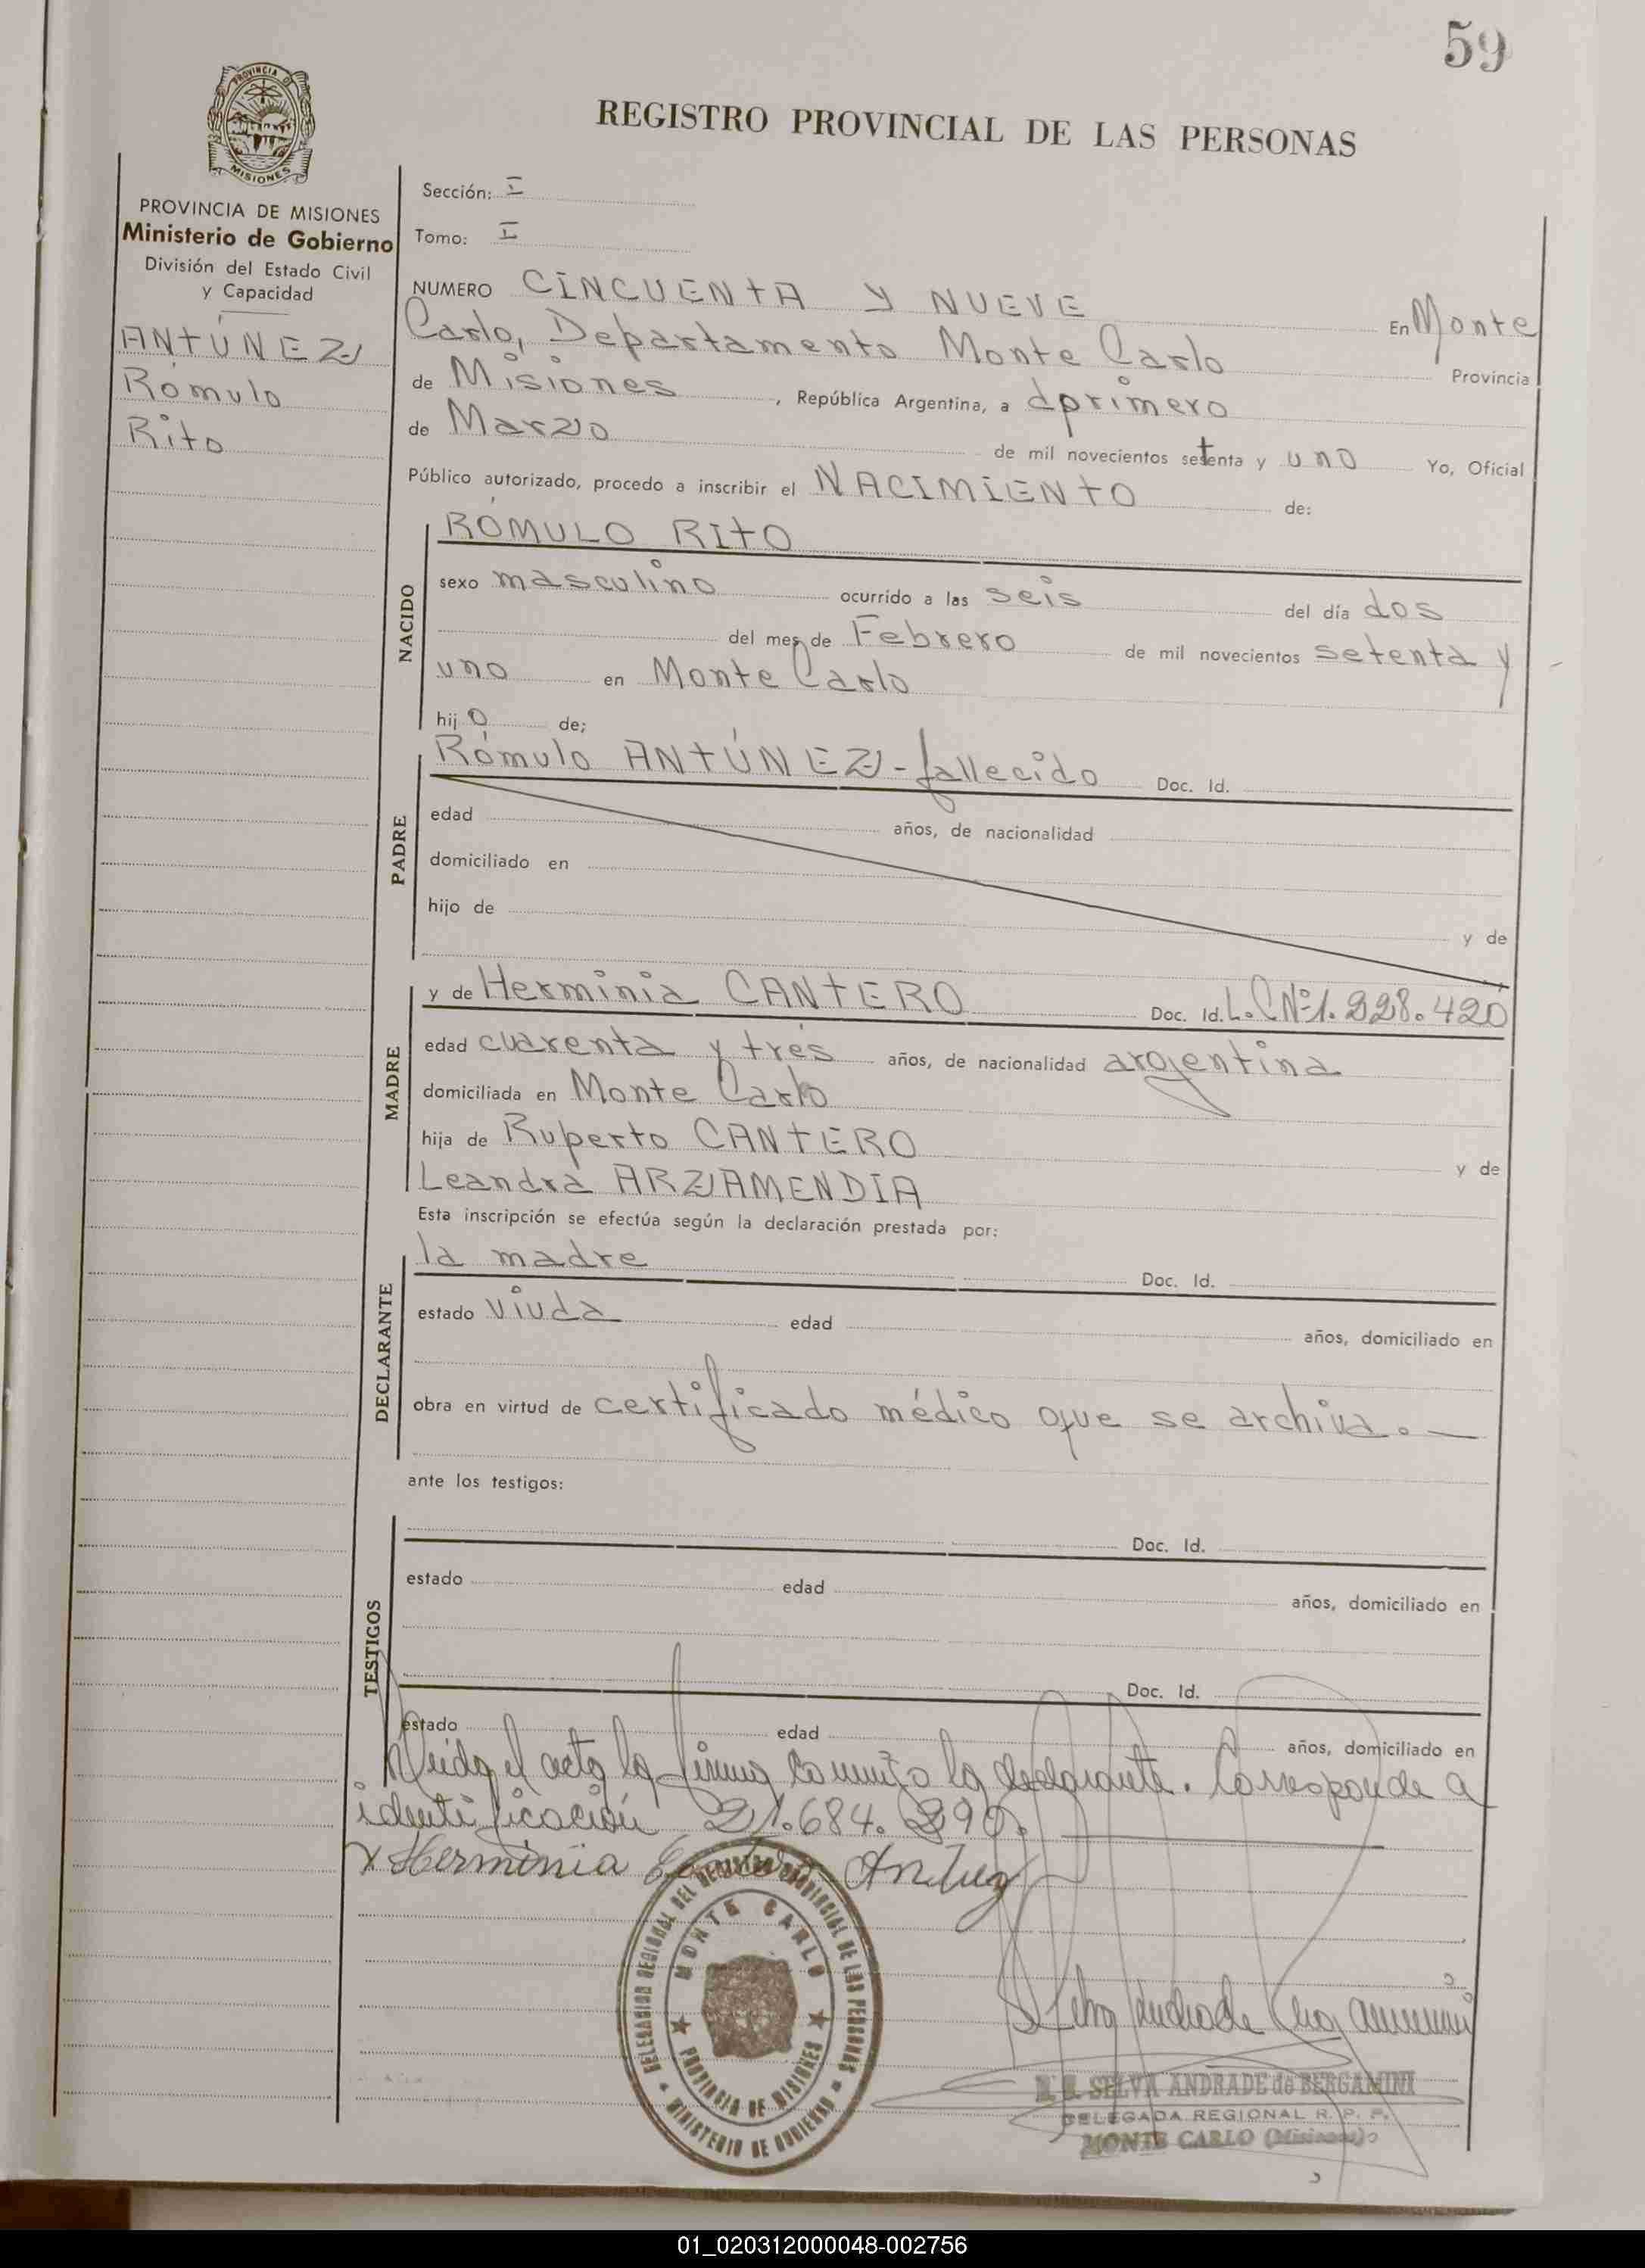 59
PROVINCIA DE
MISIONES
REGISTRO PROVINCIAL DE LAS PERSONAS
PROVINCIA DE MISIONES
Ministerio de Gobierno
División del Estado Civil
y Capacidad
ANTÚNEZ
Rómulo
Rito
Sección: I
Tomo: I
NUMERO CINCUENTA Y NUEVE En Monte
Carlo, Departamento Monte Carlo Provincia
de Misiones, República Argentina, a primero
de Marzo de mil novecientos setenta y uno Yo, Oficial
Público autorizado, procedo a inscribir el NACIMIENTO de:
NACIDO
RÓMULO RITO
sexo masculino ocurrido a las seis del día dos
del mes de Febrero de mil novecientos setenta y
uno en Monte Carlo
hijo de;
PADRE
Rómulo ANTÚNEZ - fallecido Doc. Id.
edad años, de nacionalidad
domiciliado en
hijo de y de
MADRE
y de Herminia CANTERO Doc. Id. L.C Nº 1.228.420
edad cuarenta y tres años, de nacionalidad argentina
domiciliada en Monte Carlo
hija de Ruperto CANTERO y de
Leandra ARZAMENDIA
Esta inscripción se efectúa según la declaración prestada por:
DECLARANTE
la madre Doc. Id.
estado viuda edad años, domiciliado en
obra en virtud de certificado médico que se archiva. —
ante los testigos:
TESTIGOS
Doc. Id.
estado edad años, domiciliado en
Doc. Id.
estado edad años, domiciliado en
Leida el acta la firma conmigo la declarante. Corresponde a
identificación 21.684.290.
x Herminia Antuez
DELEGACION REGIONAL DEL REGISTRO PROVINCIAL DE LAS PERSONAS
MONTE CARLO
PROVINCIA DE MISIONES
MINISTERIO DE GOBIERNO
SELVA ANDRADE de BERGAMINI
DELEGADA REGIONAL R. P. P.
MONTE CARLO (Misiones)
01_020312000048-002756